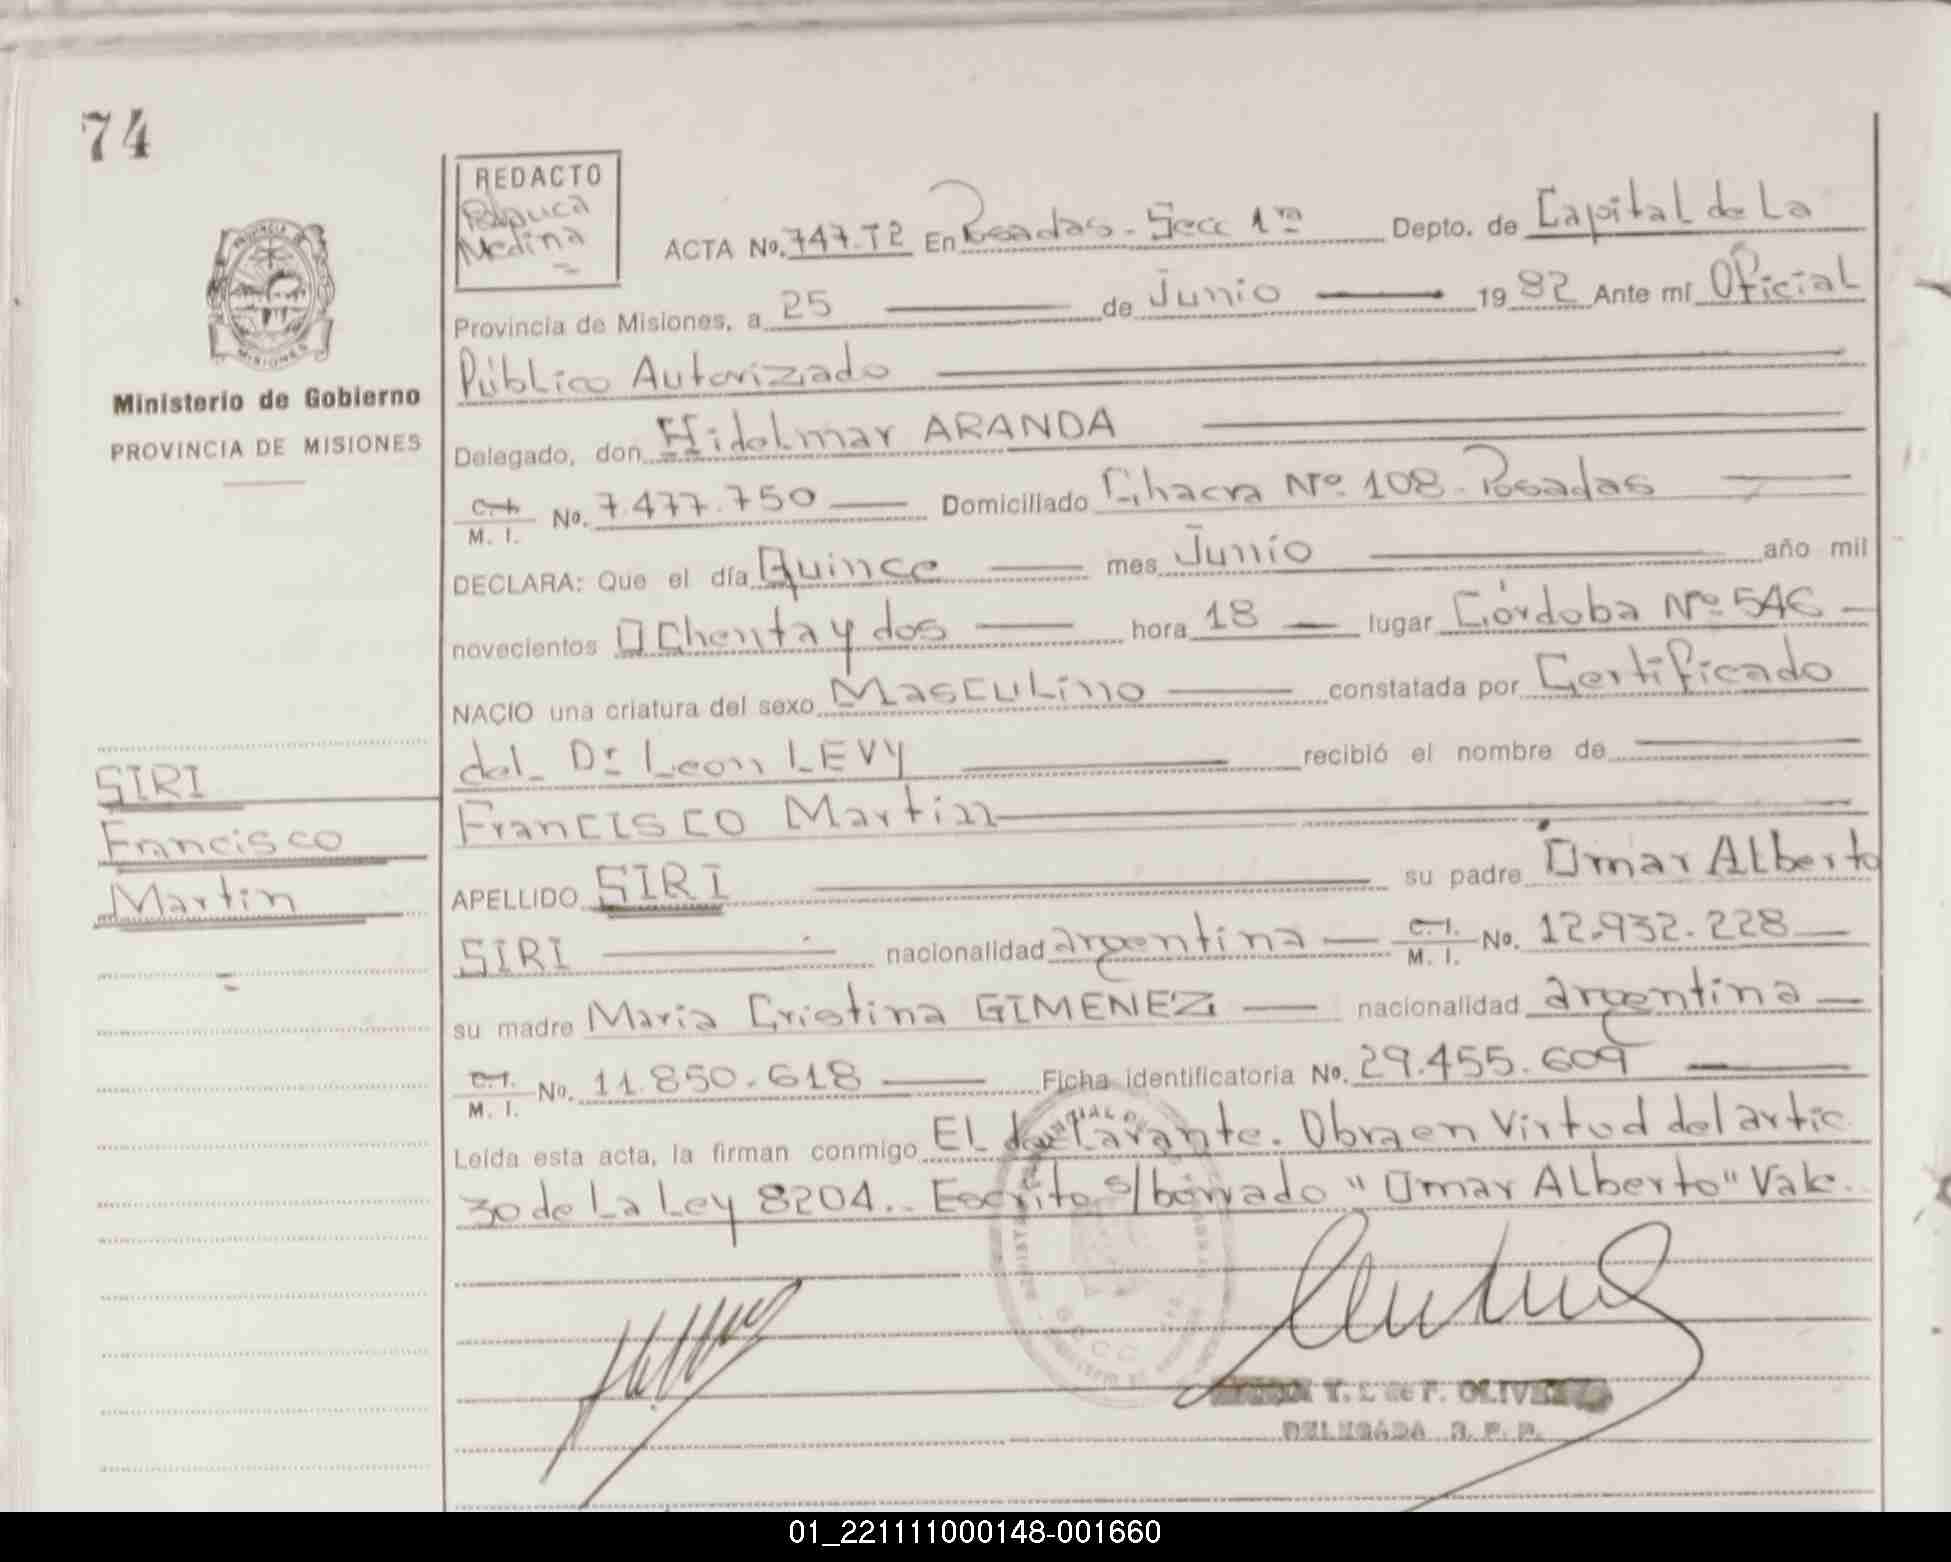 74
REDACTO
Medina
ACTA No. 747.T2 En Posadas - Secc 1ra Depto. de Capital de La
Provincia de Misiones, a 25 de Junio 1982 Ante mí Oficial
Público Autorizado
MISIONES
Ministerio de Gobierno
PROVINCIA DE MISIONES
Delegado, don Hidelmar ARANDA
C.I. M. I. No. 7.477.750 Domiciliado Chacra Nº 108 - Posadas
DECLARA: Que el día Quince mes Junio año mil
novecientos Ochenta y dos hora 18 lugar Córdoba Nº 546
NACIO una criatura del sexo Masculino constatada por Certificado
del Dr Leon LEVY recibió el nombre de
Francisco Martin
APELLIDO SIRI su padre Omar Alberto
SIRI nacionalidad argentina C.I. M. I. No. 12.932.228
su madre Maria Cristina GIMENEZ nacionalidad argentina
C.I. M. I. No. 11.850.618 Ficha identificatoria No. 29.455.609
Leída esta acta, la firman conmigo El declarante. Obra en Virtud del artic.
30 de La Ley 8204.. Escrito s/borrado "Omar Alberto" Vale.
SIRI
Francisco
Martin
T. L de F. OLIVEIRA
DELEGADA R. P. P.
01_221111000148-001660